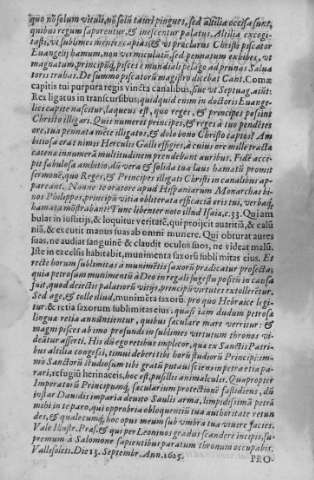 quo nō solum vituli, nō solū taurí pingues, sed altilia occisa sunt,
quibus regum saporentur, & inescentur palatus. Altilia excogi-
tasti, vt sublimes mentes capias: & vt præclarus Christi piscator
Euangelij hamum, non vermiculũ, sed pennatum exhibes, vt
magnatum, principũq; pisces è mundiali pelago ad prunas Salua
toris trahas. De summo piscatorũ magistro dicebat Cant. Comæ
capitis tui purpura regis vincta canalibus, siue vt Septuag. aiũt:
Rex ligatus in transcursibus; quidquid enim in doctoris Euange-
lici capite nascitur, laqueus est, quo reges, & principes possint
Christo illigari. Quis numeret principes, & reges à tuo pendētes
ore, tua pennata mēte illigatos, & dolo bono Christo captos? Am
bitiosa erat nimis Herculis Galli effigies, à cuius ore mille tracta
catena innumerã multitudinem prendebant auribus. Fide accē-
pit fabulosa ambitio, dũ vera & solida tua laus hamatũ promit
sermonē, quo Reges, & Principes illigati Christi in canalibus ap-
pareant. Nonne te oratore apud Hispaniarum Monarchas bi-
nos Philippos, principũ vitia obliterata efficaciã oris tui, verbaq;
hamata mõstrabant? Tunc libenter noto illud Isaiæ, c. 33. Qui am
bulat in iustitijs, & loquitur veritatē, qui proijcit auaritiã, & calũ
niã, & excutit manus suas ab omni munere. Qui obturat aures
suas, ne audiat sanguinē & claudit oculos suos, ne videat malũ.
Iste in excelsis habitabit, munimenta saxorũ sublimitas eius. Et
recte horum sublimitas à munimētis saxorũ prædicatur profecta;
quia petrosum munimentũ à Deo in regali sugestu posceris in causa
fuit, quod deiectis palatorũ vitijs, principũ virtutes extollerētur.
Sed age, & tolle illud, munimēta saxorũ. pro quo Hebraice legi-
tur, & retia saxorum sublimitas eius; quasi iam dudum petrosa
lingua retia annultientur, quibus seculare mare verritur: &
magni pisces ab imo profundi in sublimes virtutum thronos vi-
deãtur asserti. His diu ego retibus implicor, qua ex Sanctis Patri-
bus altilia congessi, timui deberi tibi horũ studiorũ Principi: im-
mò Sanctorũ studiosum tibi gratũ putaui: sciens in petra etia pa-
rari, refugiũ herinaceis, hoc est, pusillis animalculis. Quapropter
Imperatorũ Principumq; sæcularium protectionē fastidiens, dũ
instar Dauidis imparia deuoto Saulis arma, limpidissimã petrã
mihi in te paro, qui opprobria obloquentiũ tua authoritate retun
des, & qualecumq; hoc opus meum sub vmbra tua viuere facies.
Vale Illustr. Præs. & qui per Leoninos gradus scandere incipis, su-
premum à Salomone sapientibus paratum thronum occupabis.
Vallesoleti. Die 15. Septembr. Ann. 1605.
PRO-